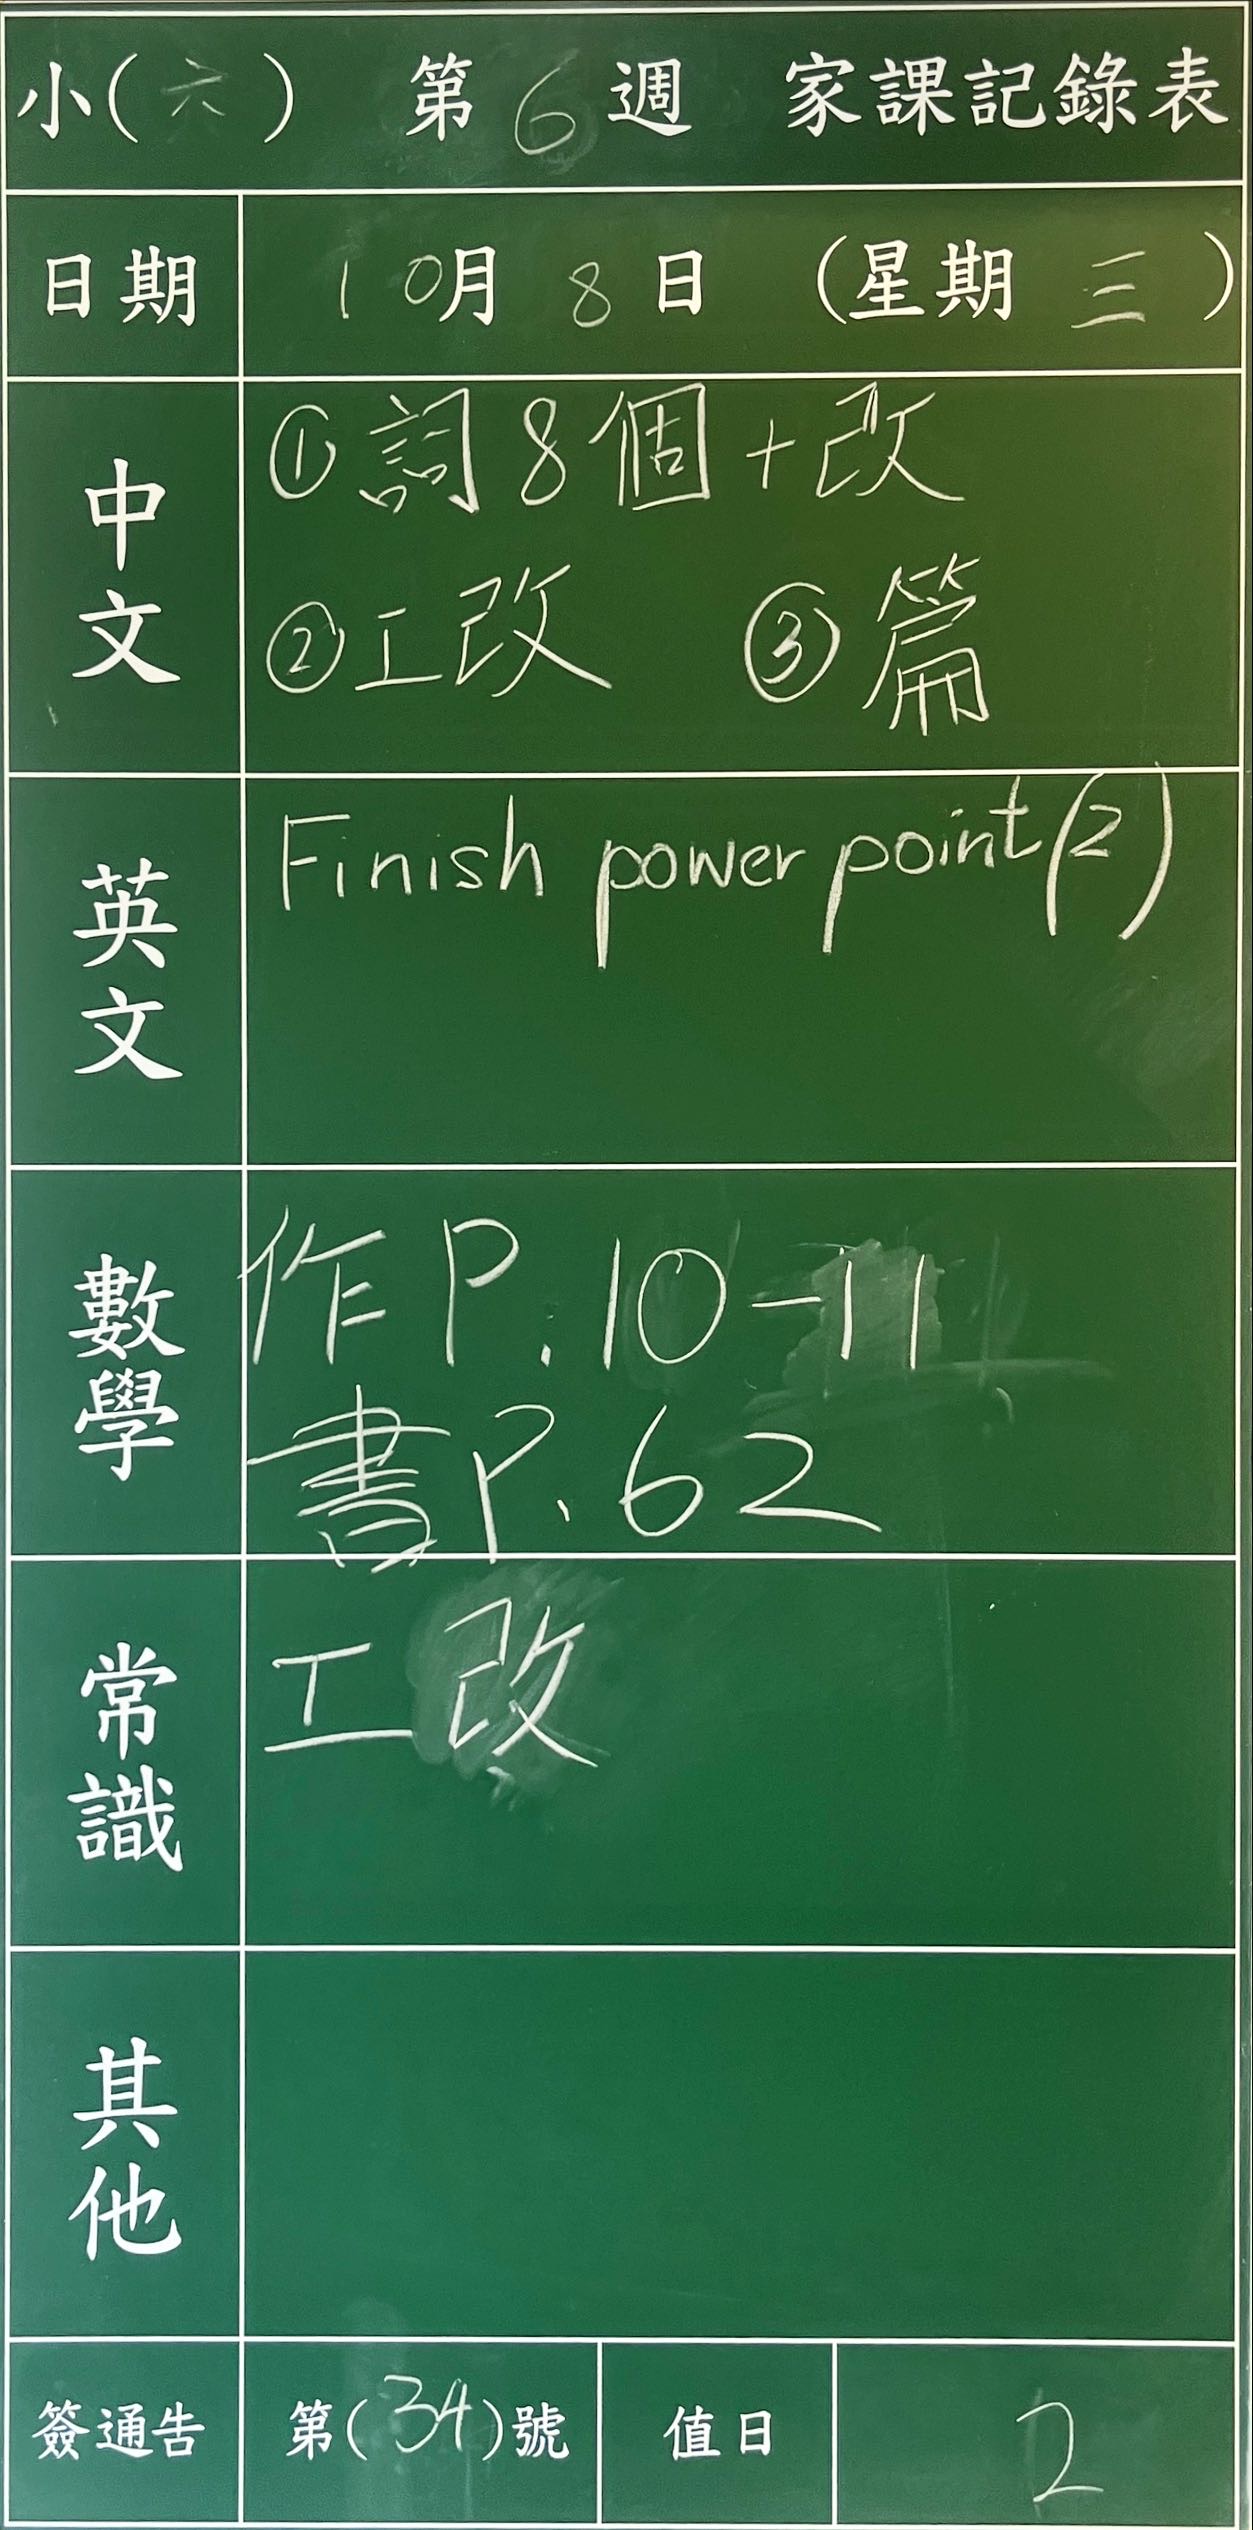 小(六) 第6週 家課記錄表
日期 10月8日 (星期三)
中文
①詞8個+改
②工改 ③篇
英文
Finish power point(2)
數學
作P.10-11
書P.62
常識
工改
其他
簽通告 第(34)號 值日 2